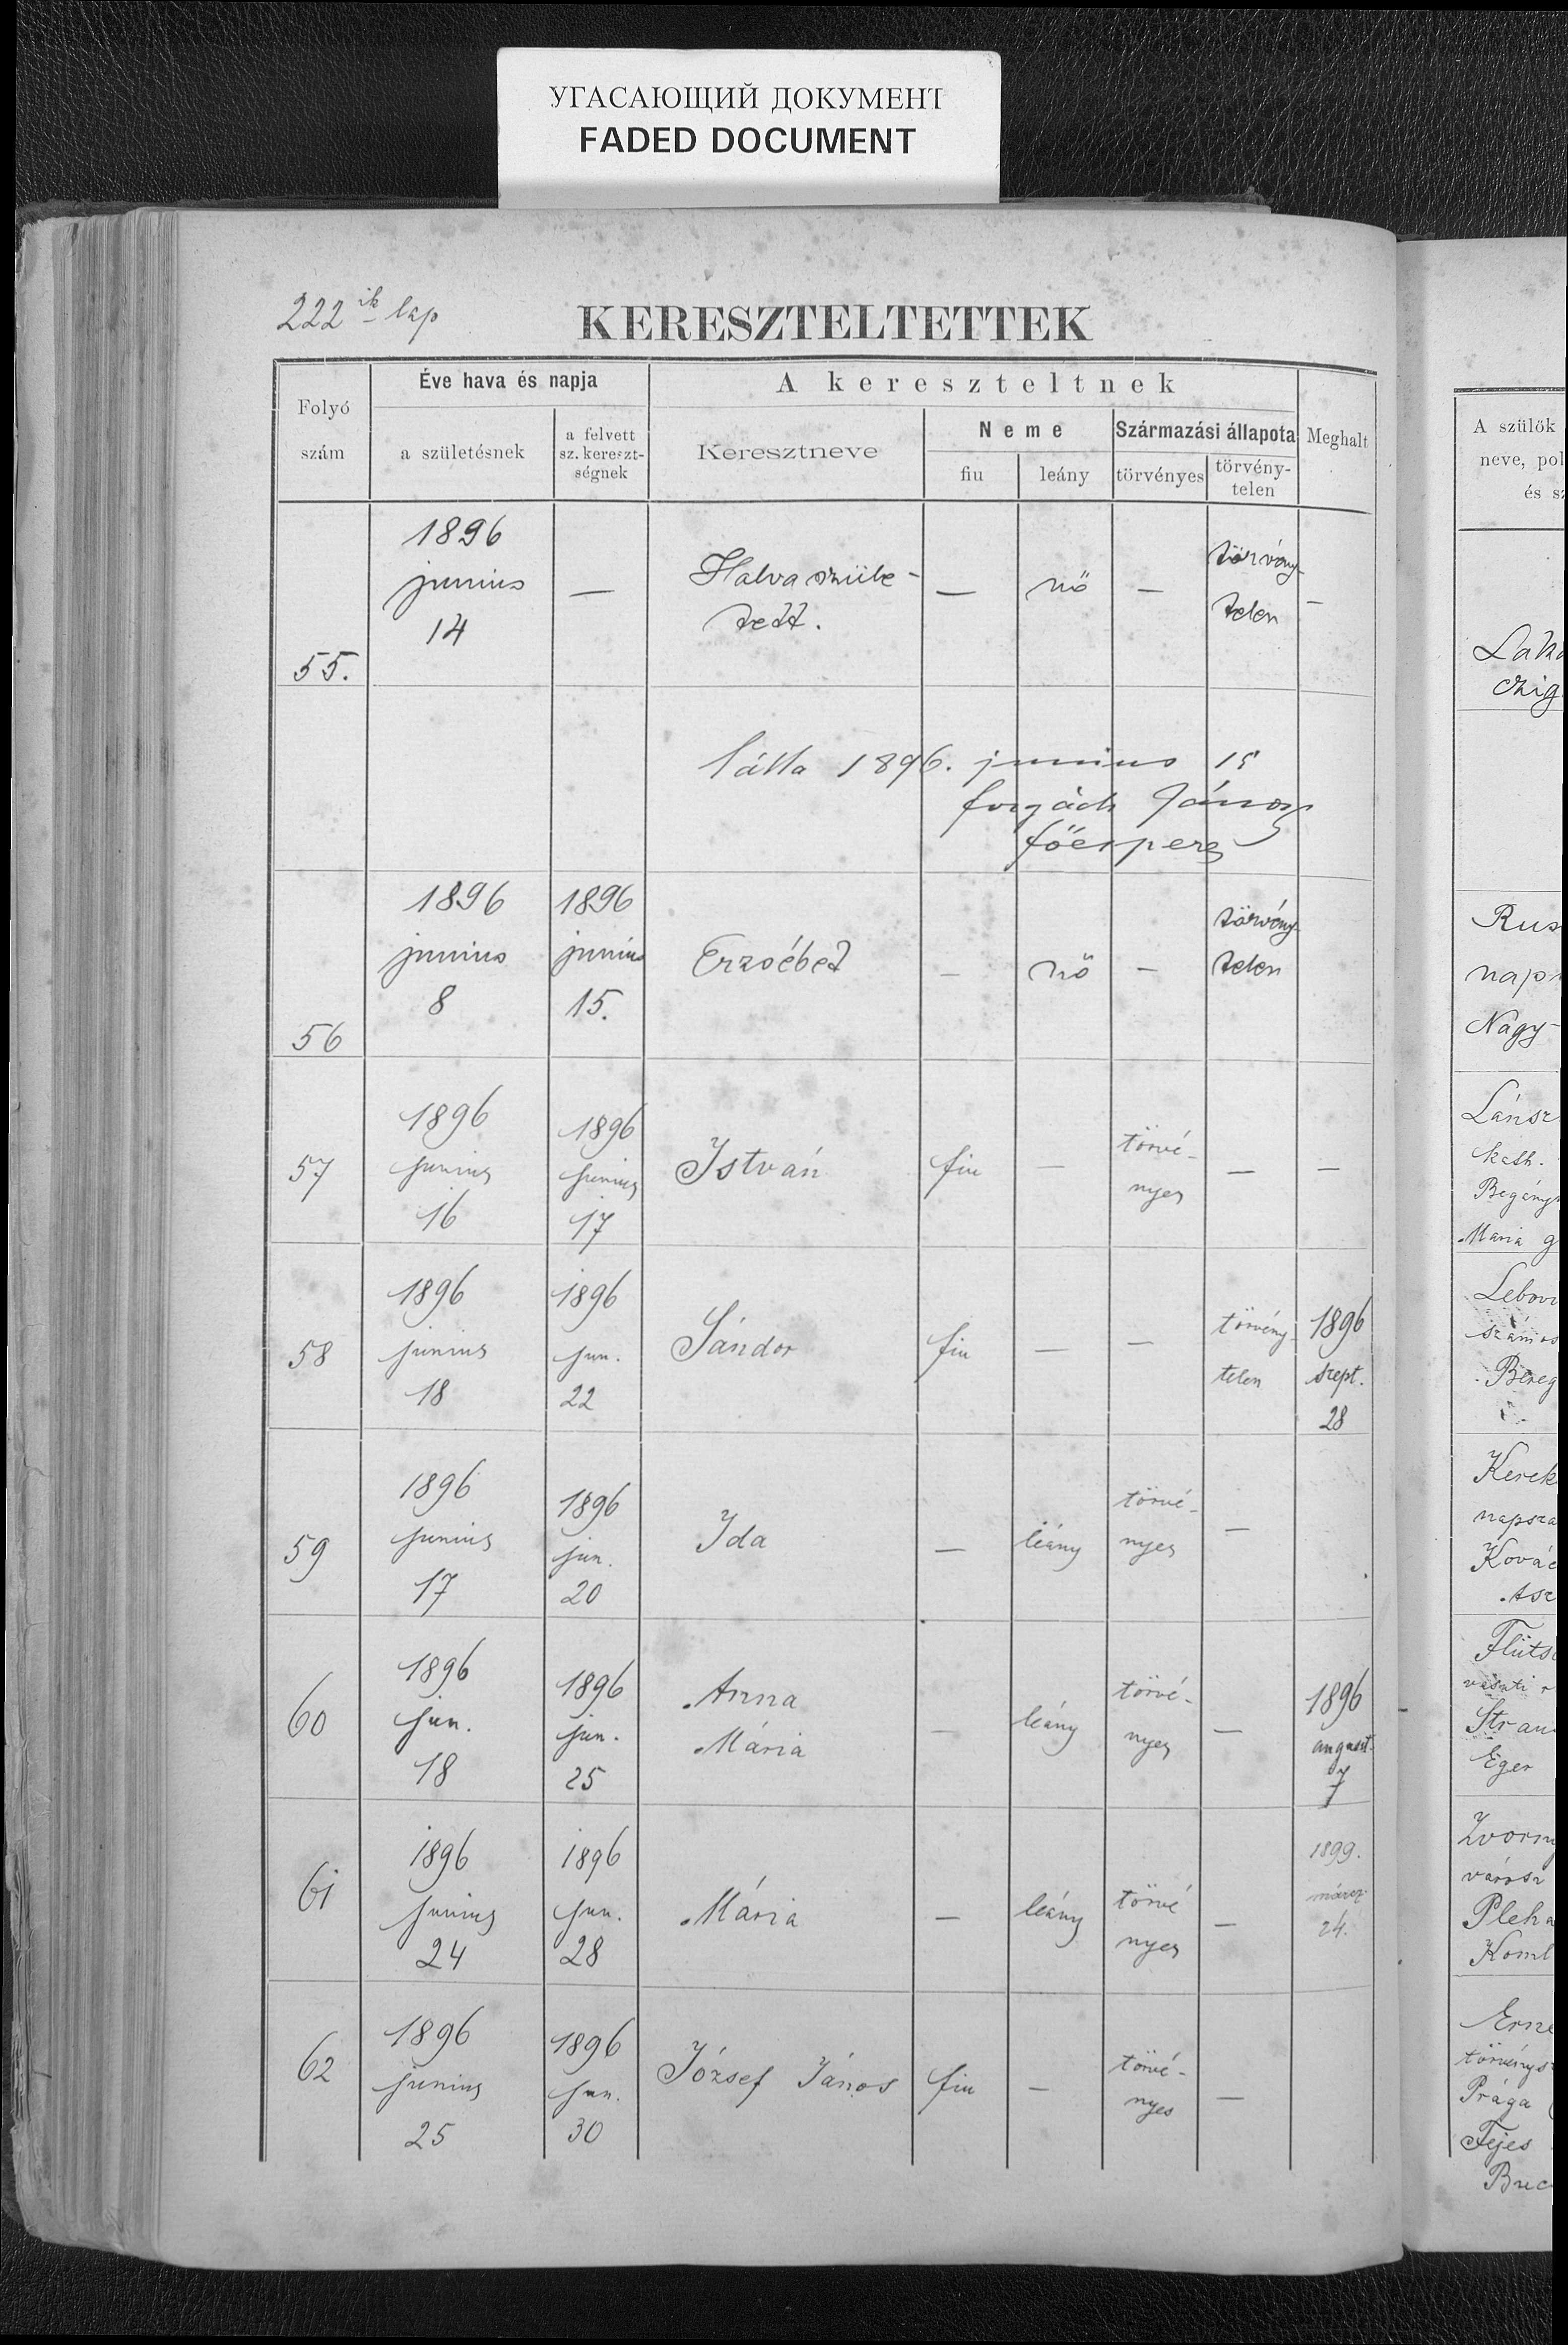 УГАСАЮЩИЙ ДОКУМЕНТ
FADED DOCUMENT
222 ik lap
KERESZTELTETTEK
Folyó szám
Éve hava és napja
a születésnek
a felvett sz. kereszt-ségnek
A kereszteltnek
Keresztneve
Neme
fiu
leány
Származási állapota
törvényes
törvény-telen
Meghalt
55.
1896 junius 14
—
Halva szüle-
tett.
—
nő
—
törvény-
telen
—
Látta 1896. junius 15
forgách János
főesperes
56
1896 junius 8
1896 junius 15.
Erzsébet
—
nő
—
törvény-
telen
57
1896 junius 16
1896 junius 17
István
fiu
—
törvé-
nyes
—
—
58
1896 junius 18
1896 jun. 22
Sándor
fiu
—
—
törvény-
telen
1896 szept. 28
59
1896 junius 17
1896 jun. 20
Ida
—
leány
törvé-
nyes
—
60
1896 jun. 18
1896 jun. 25
Anna
Mária
—
leány
törvé-
nyes
—
1896 august. 7
61
1896 junius 24
1896 jun. 28
Mária
—
leány
törvé
nyes
—
1899. márcz. 24.
62
1896 junius 25
1896 jun. 30
József János
fiu
—
törvé-
nyes
—
A szülők
neve, pol
és sz
Laka
czig
Rus
naps
Nagy-
Lánsz
kath.
Begány
Mária g
Lebov
számos
Bereg
Kerek
napsza
Kovác
Asz
Flüts
Stran
Eger
Zvorny
városz
Pleha
Koml
Erne
törvénys
Prága
Fejes
Buc